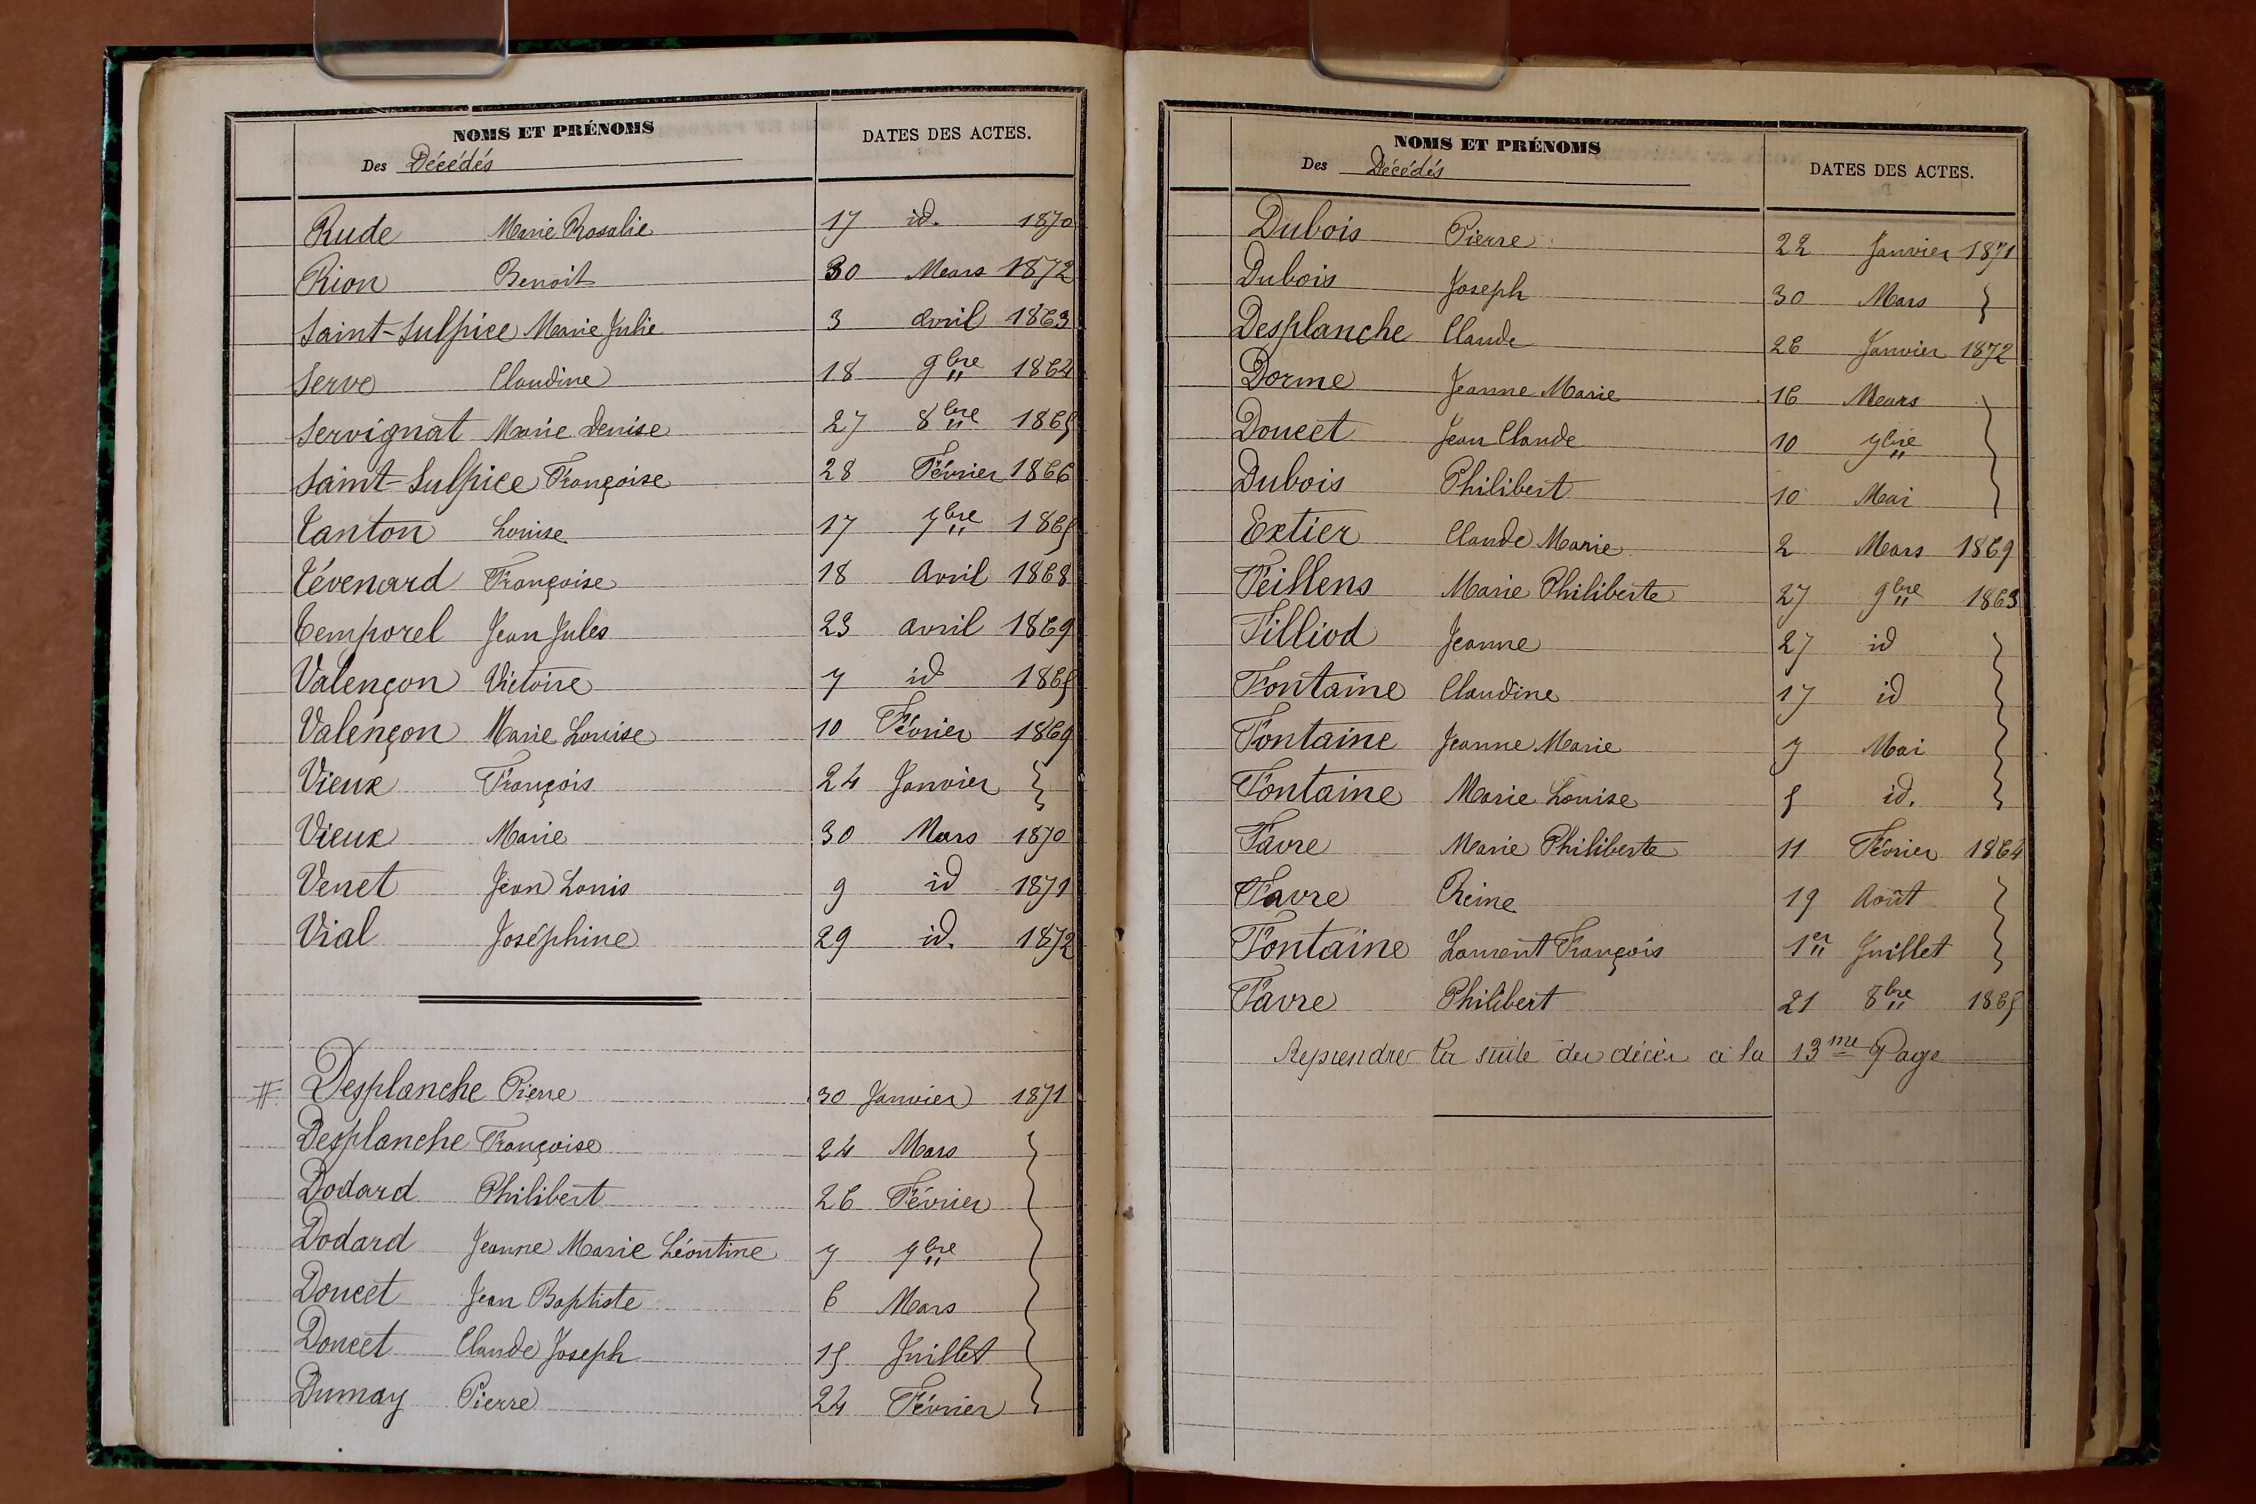 NOMS ET PRÉNOMS
Des Décédés
DATES DES ACTES.
Rude Marie Rosalie 17 id. 1870
Rion Benoit 30 Mars 1872
Saint-Sulpice Marie Julie 3 avril 1863
Serve Claudine 18 9bre 1864
Servignat Marie Denise 27 8bre 1865
Saint-Sulpice Françoise 28 Février 1866
Tanton Louise 17 7bre 1865
Tévenard Françoise 18 Avril 1868
Temporel Jean Jules 23 avril 1869
Valençon Victoire 7 id 1865
Valençon Marie Louise 10 Février 1869
Vieux François 24 Janvier }
Vieux Marie 30 Mars 1870
Venet Jean Louis 9 id 1871
Vial Joséphine 29 id. 1872
# Desplanche Pierre 30 Janvier 1871
Desplanche Françoise 24 Mars
Dodard Philibert 26 Février
Dodard Jeanne Marie Léontine 7 9bre
Doucet Jean Baptiste 6 Mars
Doucet Claude Joseph 15 Juillet
Dumay Pierre 24 Février
NOMS ET PRÉNOMS
Des Décédés
DATES DES ACTES.
Dubois Pierre 22 Janvier 1871
Dubois Joseph 30 Mars }
Desplanche Claude 26 Janvier 1872
Dorme Jeanne Marie 16 Mars
Doucet Jean Claude 10 7bre
Dubois Philibert 10 Mai
Extier Claude Marie 2 Mars 1869
Feillens Marie Philiberte 27 9bre 1863
Filliod Jeanne 27 id
Fontaine Claudine 17 id
Fontaine Jeanne Marie 7 Mai
Fontaine Marie Louise 5 id.
Favre Marie Philiberte 11 Février 1864
Favre Reine 19 Août
Fontaine Laurent François 1er Juillet
Favre Philibert 21 8bre 1865
Reprendre la suite des décès à la 13me Page